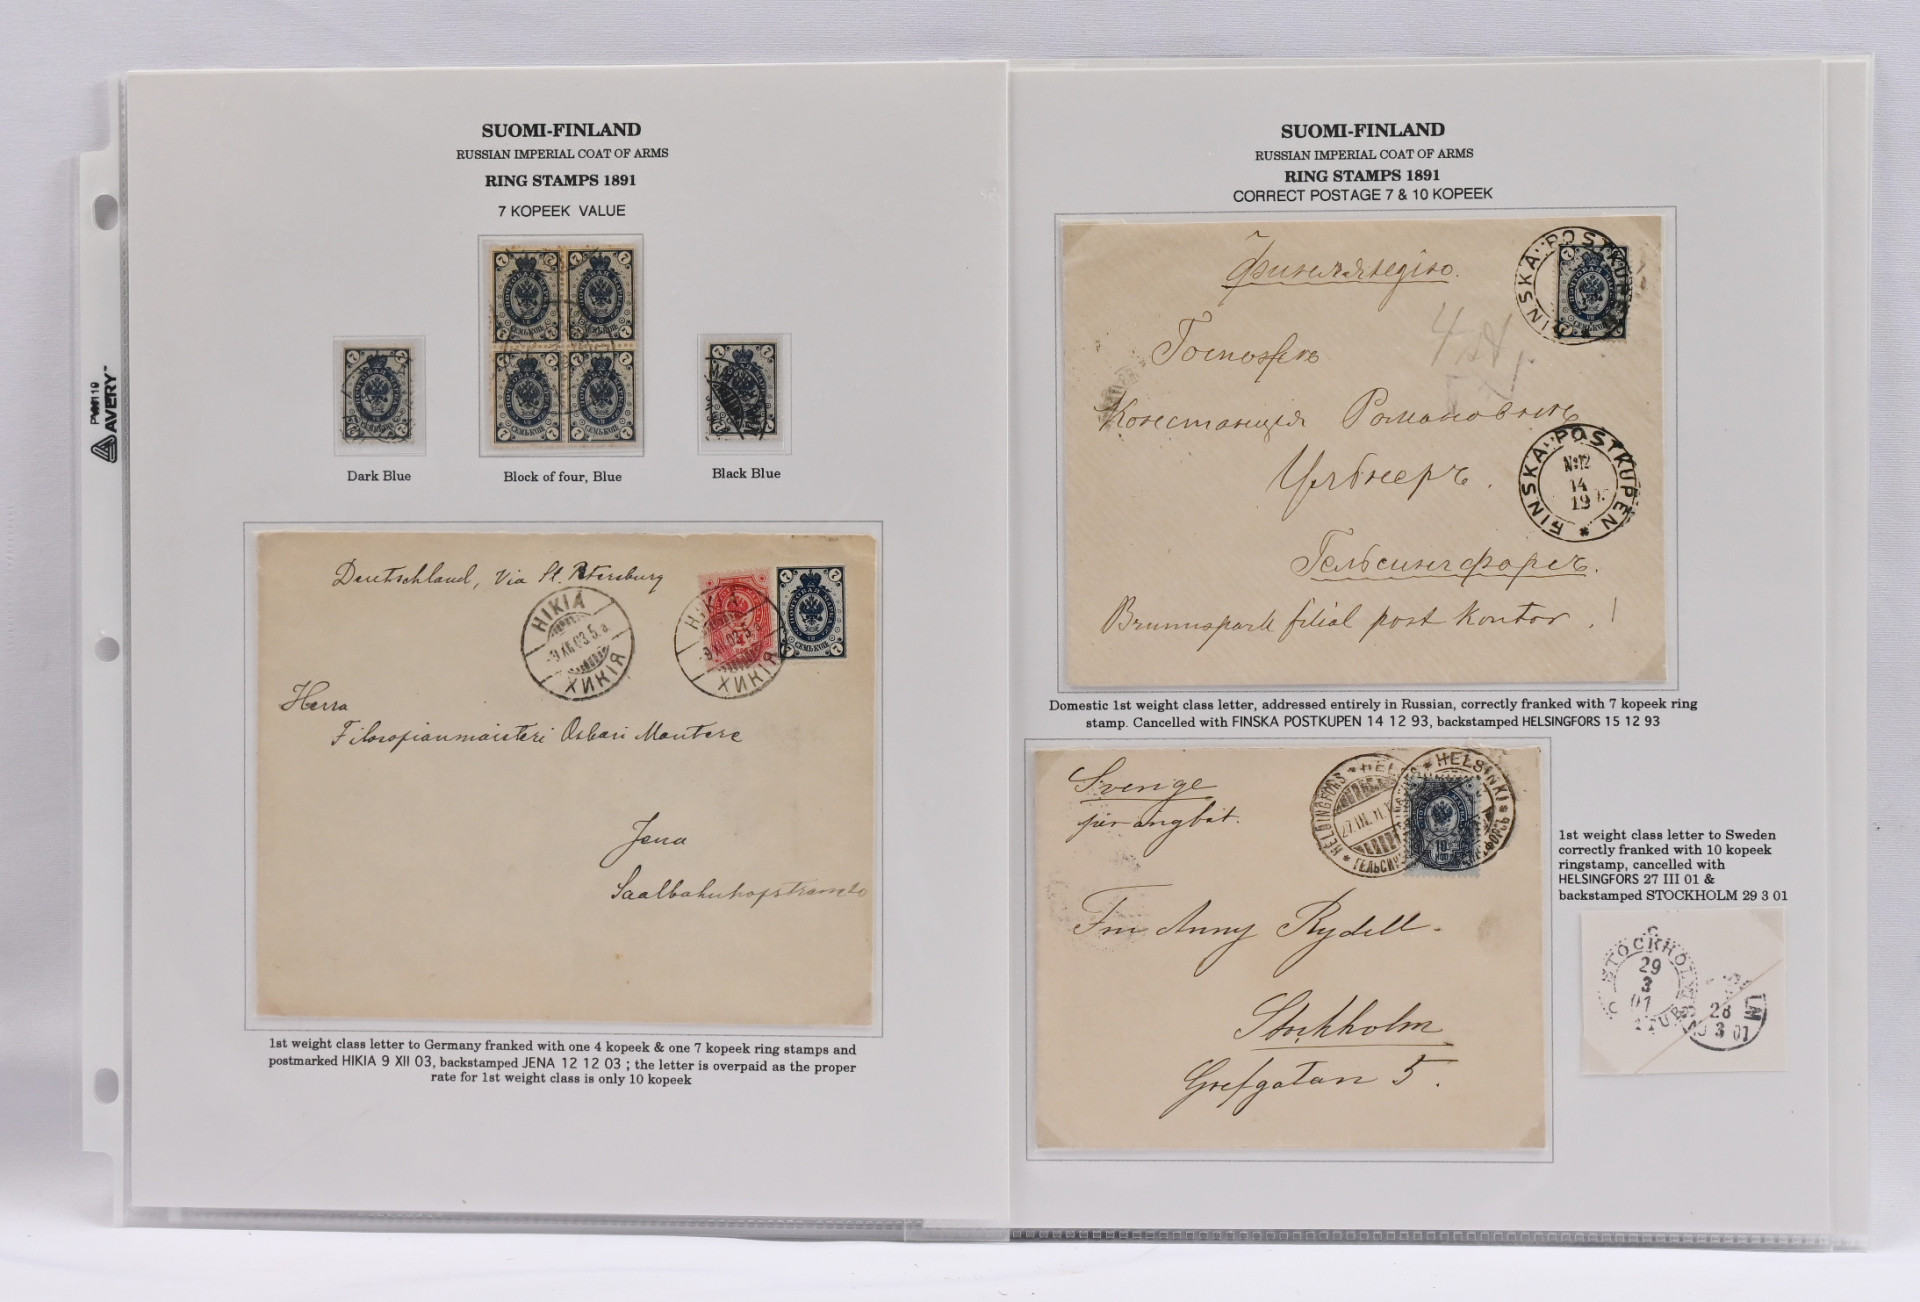 SUOMI-FINLAND
RUSSIAN IMPERIAL COAT OF ARMS
RING STAMPS 1891
7 KOPEEK VALUE
Dark Blue
Block of four, Blue
Black Blue
AVERY™
Deutschland, via St. Petersburg
HIKIA
9 XII 03.5 a.
ХИКIЯ
HIKIA
9 XII 03.5 a.
ХИКIЯ
7
СЕМЬ КОП
Herra
Filosofianmaisteri Oskari Mantere
Jena
1st weight class letter to Germany franked with one 4 kopeek & one 7 kopeek ring stamps and
postmarked HIKIA 9 XII 03, backstamped JENA 12 12 03 ; the letter is overpaid as the proper
rate for 1st weight class is only 10 kopeek
SUOMI-FINLAND
RUSSIAN IMPERIAL COAT OF ARMS
RING STAMPS 1891
CORRECT POSTAGE 7 & 10 KOPEEK
FINSKA POSTKUPEN
Финляндiю.
Госпожѣ
Констанцiя Романовнѣ
FINSKA POSTKUPEN
№12
14
12
Гельсингфорсъ.
Brunnspark filial post kontor. !
Domestic 1st weight class letter, addressed entirely in Russian, correctly franked with 7 kopeek ring
stamp. Cancelled with FINSKA POSTKUPEN 14 12 93, backstamped HELSINGFORS 15 12 93
Sverige
per ångbåt.
HELSINGFORS
HELSINKI
27.III.
10
Frn Anny Rydell.
Stockholm
Grefgatan 5.
1st weight class letter to Sweden
correctly franked with 10 kopeek
ringstamp, cancelled with
HELSINGFORS 27 III 01 &
backstamped STOCKHOLM 29 3 01
STOCKHOLM
29
3
01
28
3 01